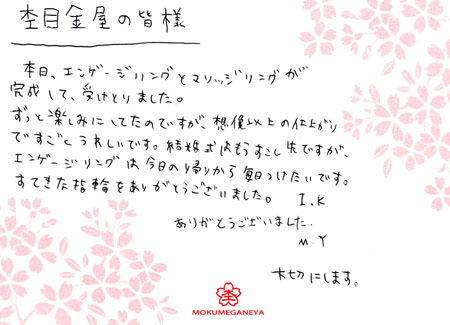 杢目金屋の皆様
本日、エンゲージリングとマリッジリングが
完成して、受けとりました。
ずっと楽しみにしてたのですが、想像以上の仕上がり
ですごくうれしいです。結婚式はもうすこし先ですが、
エンゲージリングは今日の帰りから毎日つけたいです。
すてきな指輪をありがとうございました。 I.K
ありがとうございました.
M.Y
大切にします。
MOKUMEGANEYA